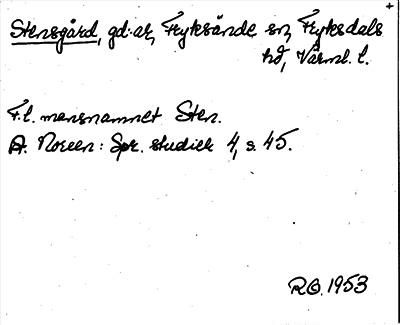 Stensgård, gd. ar, Fryksände sn, Fryksdals
hd, Värml. l.
F.l. mansnamnet Sten.
A. Noreen: Spr. studier 4, s. 45.
R.O. 1953